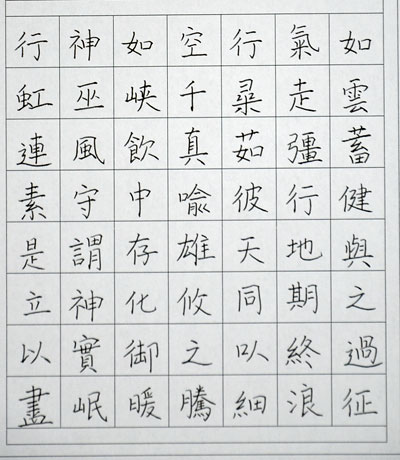 行神如空行氣如
虹巫峡千尋走雲
連風飲真茹彊蓄
素守中喻彼行健
是謂存雄天地與
立神化攸同期之
以實御之以終過
盡岷暖騰細浪征